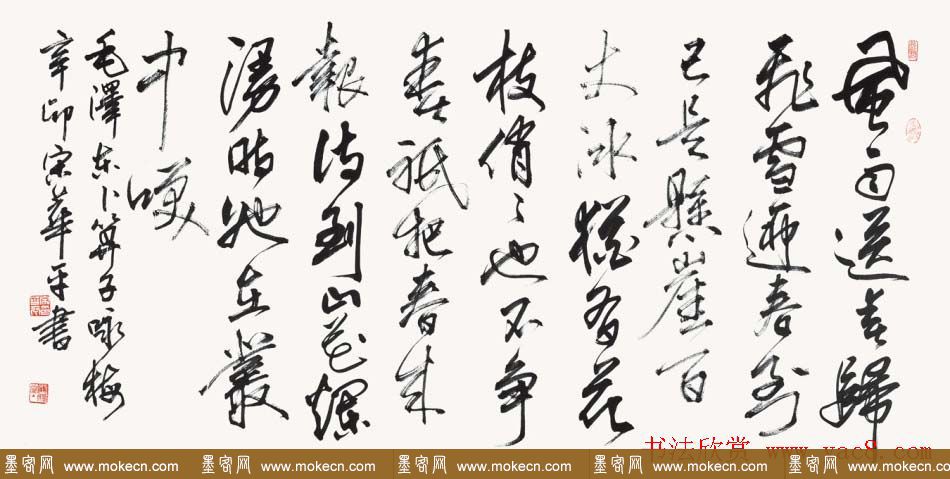 風雨送春歸
飛雪迎春到
已是懸崖百
丈冰猶有花
枝俏〻也不爭
春祇把春來
報待到山花爛
漫時她在叢
中咲
毛澤東卜算子咏梅
辛卯宋華平書
书法欣赏 www.yac8.com
墨客网 www.mokecn.com 墨客网 www.mokecn.com 墨客网 www.mokecn.com 墨客网 www.mokecn.com 墨客网 www.mokecn.com